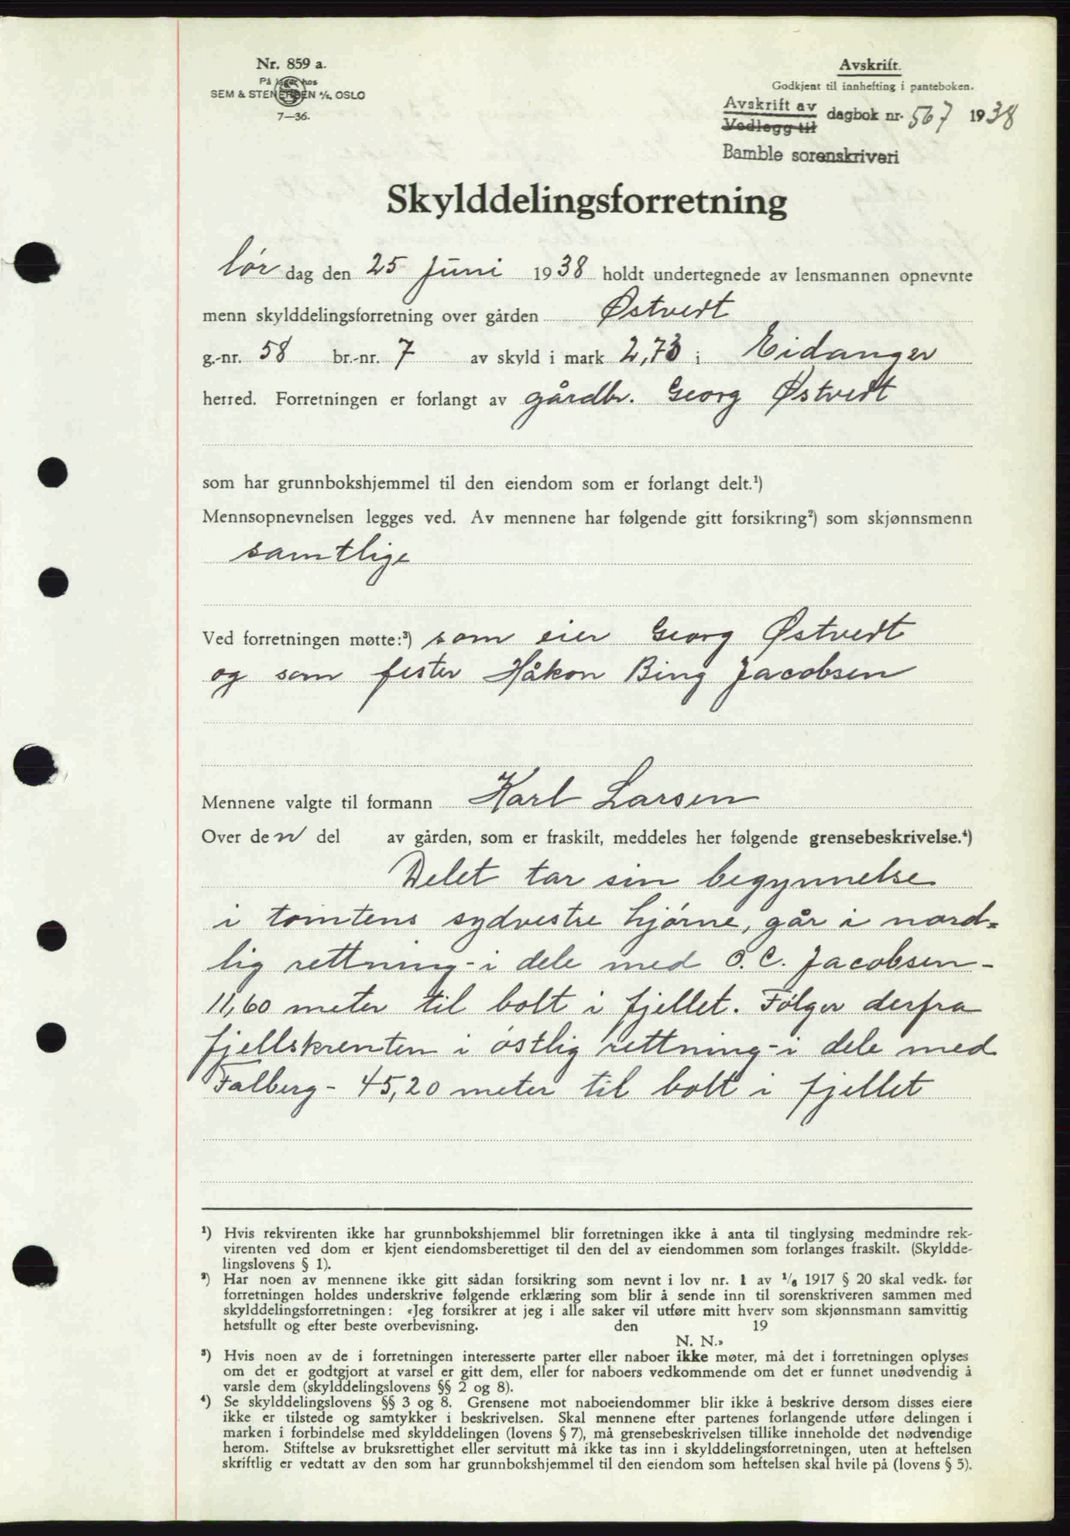 Nr. 859 a.
På lager hos
SEM & STENERSEN A/S, OSLO
7—36.
Avskrift.
Godkjent til innhefting i panteboken.
Avskrift av
Vedlegg til
dagbok nr. 567 1938
Bamble sorenskriveri
Skylddelingsforretning
lør dag den 25 Juni 1938 holdt undertegnede av lensmannen opnevnte
menn skylddelingsforretning over gården Østvedt
g.-nr. 58 br.-nr. 7 av skyld i mark 2,73 i Eidanger
herred. Forretningen er forlangt av gårdbr. Georg Østvedt
som har grunnbokshjemmel til den eiendom som er forlangt delt.¹)
Mennsopnevnelsen legges ved. Av mennene har følgende gitt forsikring²) som skjønnsmenn
samtlige
Ved forretningen møtte:³) som eier Georg Østvedt
og som fester Håkon Bing Jacobsen
Mennene valgte til formann Karl Larsen
Over den del av gården, som er fraskilt, meddeles her følgende grensebeskrivelse.⁴)
Delet tar sin begynnelse
i tomtens sydvestre hjørne, går i nord=
lig rettning - i dele med O. C. Jacobsen -
11,60 meter til bolt i fjellet. Følger derfra
fjellskrenten i østlig rettning - i dele med
Falberg - 45,20 meter til bolt i fjellet
¹) Hvis rekvirenten ikke har grunnbokshjemmel blir forretningen ikke å anta til tinglysing medmindre rek-
virenten ved dom er kjent eiendomsberettiget til den del av eiendommen som forlanges fraskilt. (Skyldde-
lingslovens § 1).
²) Har noen av mennene ikke gitt sådan forsikring som nevnt i lov nr. 1 av 1/6 1917 § 20 skal vedk. før
forretningen holdes underskrive følgende erklæring som blir å sende inn til sorenskriveren sammen med
skylddelingsforretningen: «Jeg forsikrer at jeg i alle saker vil utføre mitt hverv som skjønnsmann samvittig
hetsfullt og efter beste overbevisning. den 19
N. N.»
³) Hvis noen av de i forretningen interesserte parter eller naboer ikke møter, må det i forretningen oplyses
om det er godtgjort at varsel er gitt dem, eller for naboers vedkommende om det er funnet unødvendig å
varsle dem (skylddelingslovens §§ 2 og 8).
⁴) Se skylddelingslovens §§ 3 og 8. Grensene mot naboeiendommer blir ikke å beskrive dersom disses eiere
ikke er tilstede og samtykker i beskrivelsen. Skal mennene efter partenes forlangende utføre delingen i
marken i forbindelse med skylddelingen (lovens § 7), må grensebeskrivelsen tillike inneholde det nødvendige
herom. Stiftelse av bruksrettighet eller servitutt må ikke tas inn i skylddelingsforretningen, uten at heftelsen
skriftlig er vedtatt av den som har grunnbokshjemmel til den eiendom som heftelsen skal hvile på (lovens § 5).